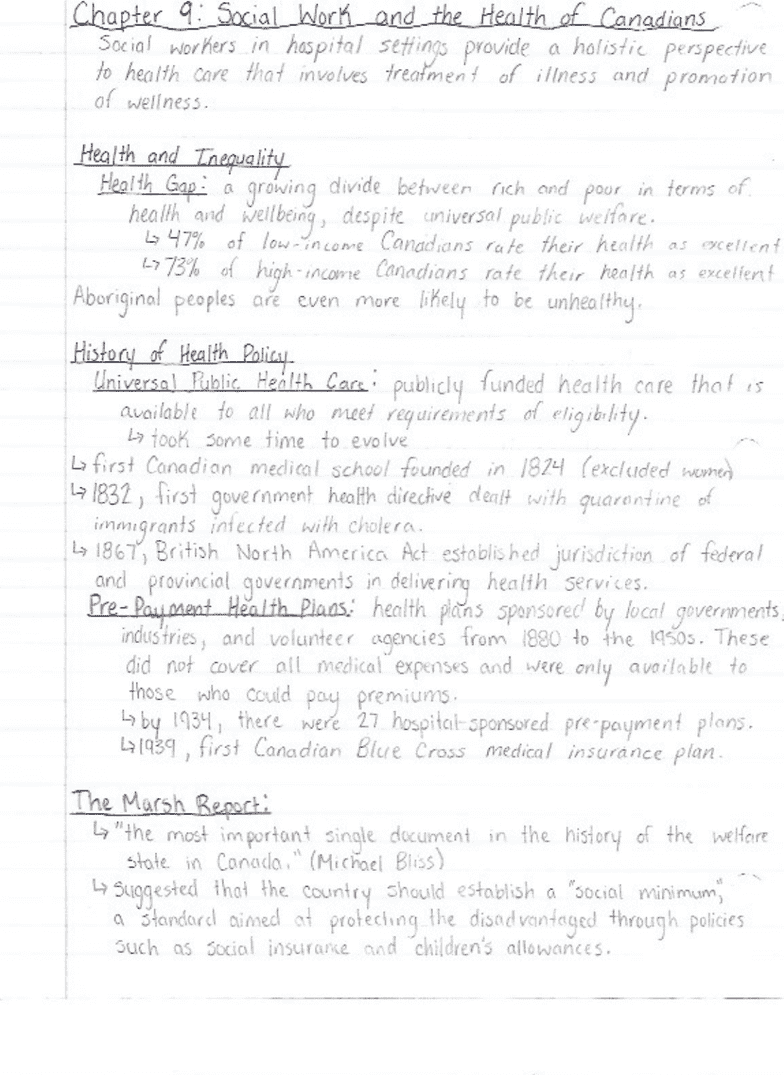 Chapter 9: Social Work and the Health of Canadians
Social workers in hospital settings provide a holistic perspective
to health care that involves treatment of illness and promotion
of wellness.
Health and Inequality
Health Gap: a growing divide between rich and poor in terms of
health and wellbeing, despite universal public welfare.
↳ 47% of low-income Canadians rate their health as excellent
↳ 73% of high-income Canadians rate their health as excellent
Aboriginal peoples are even more likely to be unhealthy.
History of Health Policy
Universal Public Health Care: publicly funded health care that is
available to all who meet requirements of eligibility.
↳ took some time to evolve
↳ first Canadian medical school founded in 1824 (excluded women)
↳ 1832, first government health directive dealt with quarantine of
immigrants infected with cholera.
↳ 1867, British North America Act established jurisdiction of federal
and provincial governments in delivering health services.
Pre-Payment Health Plans: health plans sponsored by local governments,
industries, and volunteer agencies from 1880 to the 1950s. These
did not cover all medical expenses and were only available to
those who could pay premiums.
↳ by 1934, there were 27 hospital-sponsored pre-payment plans.
↳ 1939, first Canadian Blue Cross medical insurance plan.
The Marsh Report:
↳ "the most important single document in the history of the welfare
state in Canada." (Michael Bliss)
↳ Suggested that the country should establish a "social minimum",
a standard aimed at protecting the disadvantaged through policies
such as social insurance and children's allowances.